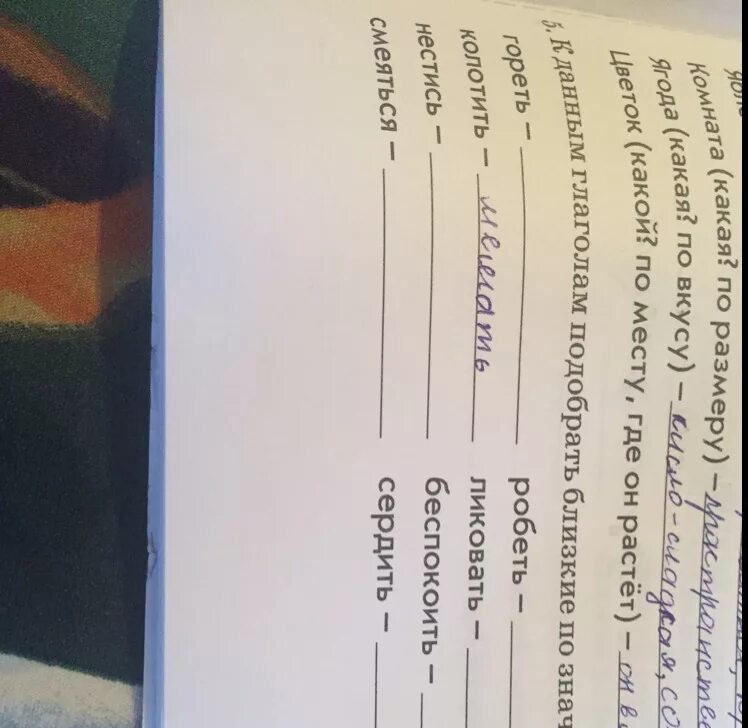 Комната (какая? по размеру) –
Ягода (какая? по вкусу) – кисло-сладкая,
Цветок (какой? по месту, где он растёт) – он в
5. К данным глаголам подобрать близкие по знач
гореть – робеть –
колотить – ликовать –
нестись – беспокоить –
смеяться – сердить –